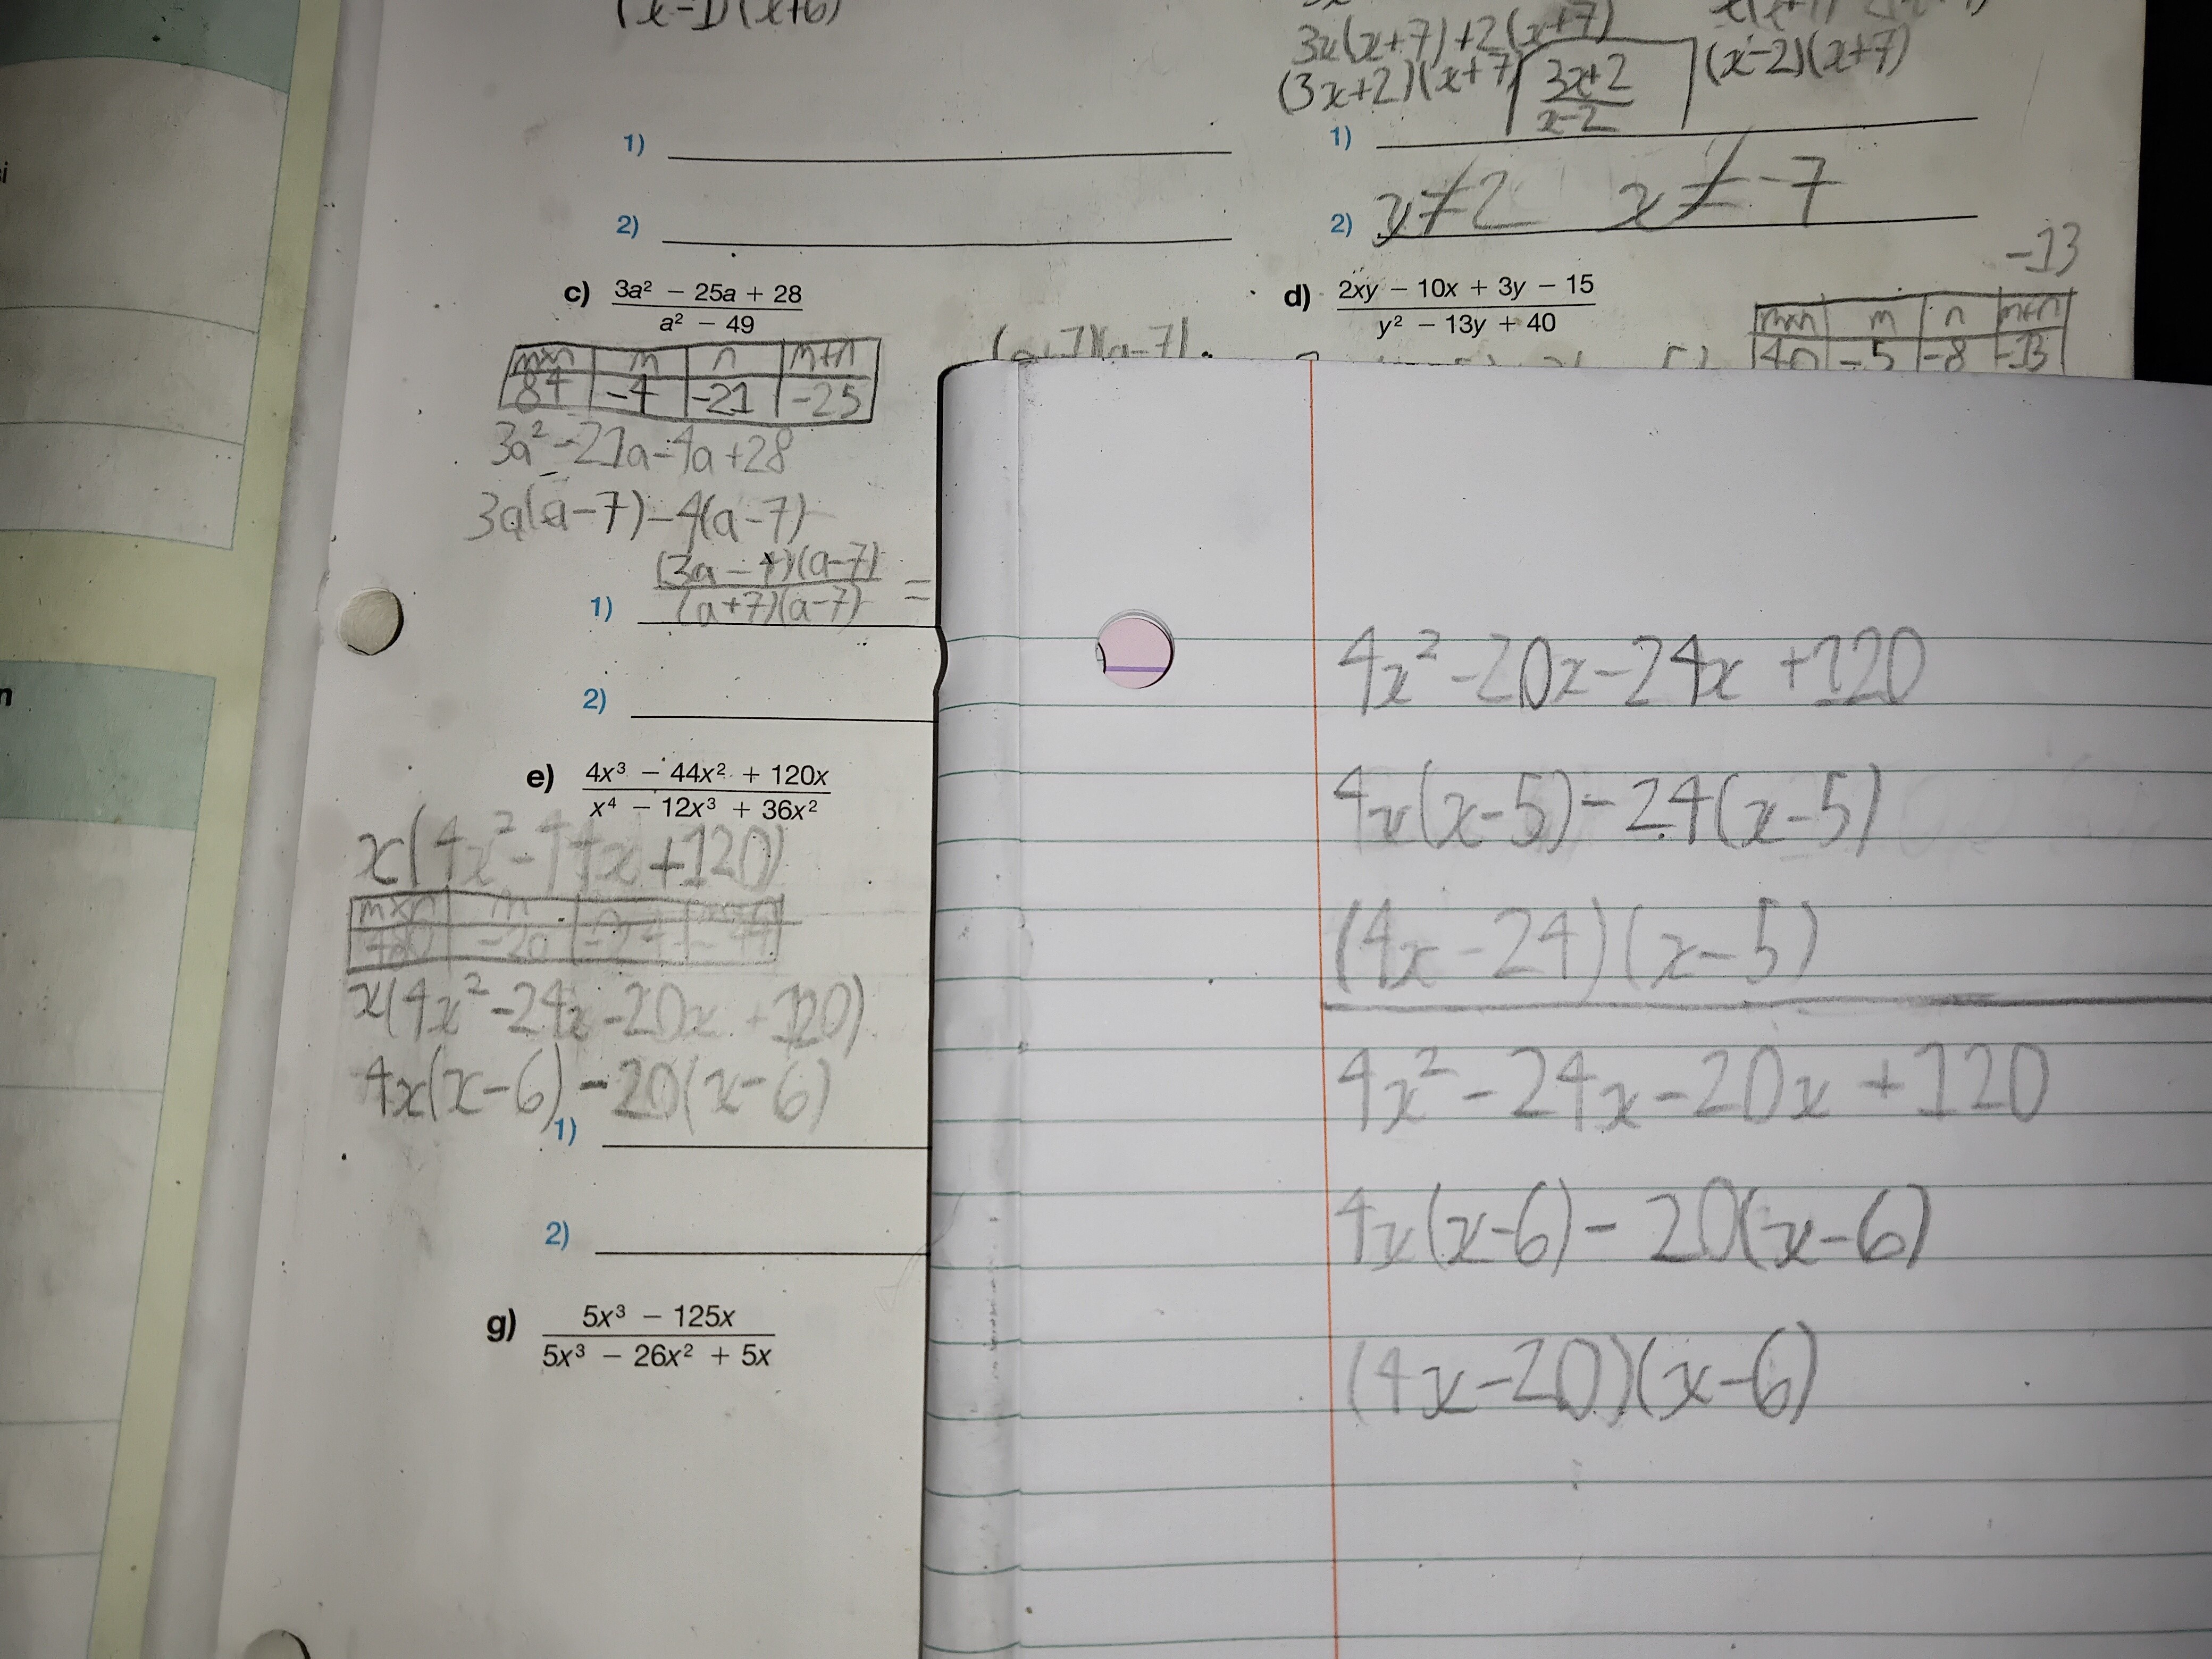 (x-1)(x+6)
3x(x+7)+2(x+7)
(3x+2)(x+7)
3x+2
x-2
(x-2)(x+7)
1)
2)
1)
2) x≠2 x≠-7
-13
c) 3a² − 25a + 28
a² − 49
mxn m n m+n
84 -4 -21 -25
3a²-21a-4a+28
3a(a-7)-4(a-7)
1) (3a-4)(a-7) =
(a+7)(a-7)
2)
(a+7)(a-7)
d) 2xy − 10x + 3y − 15
y² − 13y + 40
mxn m n m+n
40 -5 -8 -13
e) 4x³ − 44x² + 120x
x⁴ − 12x³ + 36x²
x(4x²-44x+120)
mxn m
480 -20 -24 -44
x(4x²-24x-20x+120)
4x(x-6)-20(x-6)
1)
2)
g) 5x³ − 125x
5x³ − 26x² + 5x
4x²-20x-24x+120
4x(x-5)-24(x-5)
(4x-24)(x-5)
4x²-24x-20x+120
4x(x-6)-20(x-6)
(4x-20)(x-6)